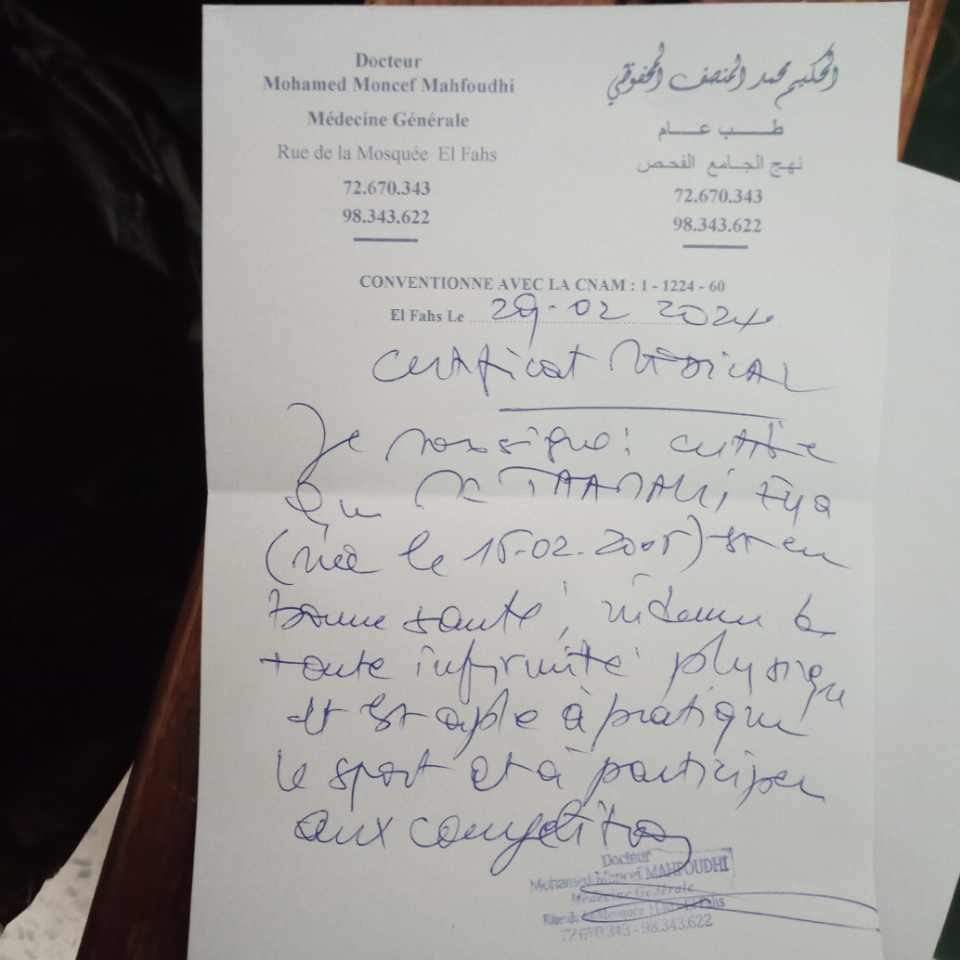 Docteur
Mohamed Moncef Mahfoudhi
Médecine Générale
Rue de la Mosquée El Fahs
72.670.343
98.343.622
الحكيم محمد المنصف المحفوظي
طب عام
نهج الجامع الفحص
72.670.343
98.343.622
CONVENTIONNE AVEC LA CNAM : 1 - 1224 - 60
El Fahs Le 29-02 2024
Certificat MEDICAL
Je soussigné: certifie
que Eya
(née le 15-02-2005) est en
bonne santé, indemne de
toute infirmité physique
et est apte à pratiquer
le sport et à participer
aux compétitions
Docteur
Mohamed Moncef MAHFOUDHI
Médecine Générale
Rue de la Mosquée El Fahs
72.670.343 - 98.343.622